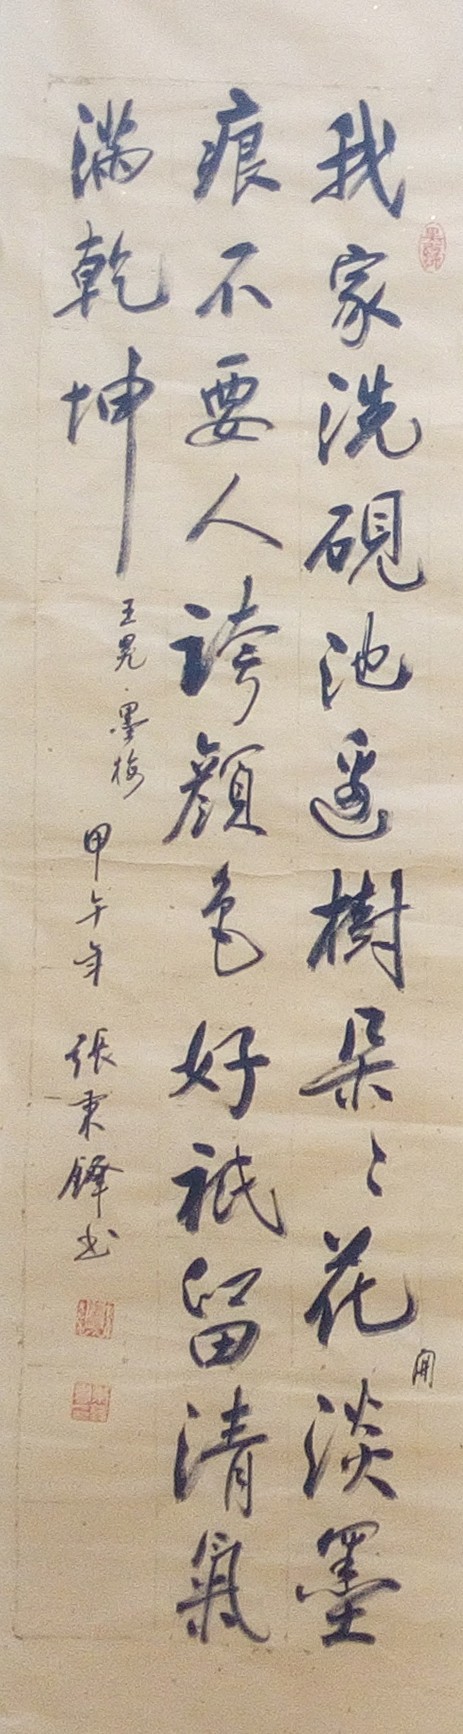 我家洗硯池邊樹朵〻花開淡墨
痕不要人誇顏色好祇留清氣
滿乾坤
王冕墨梅
甲午年
張秉鋒书